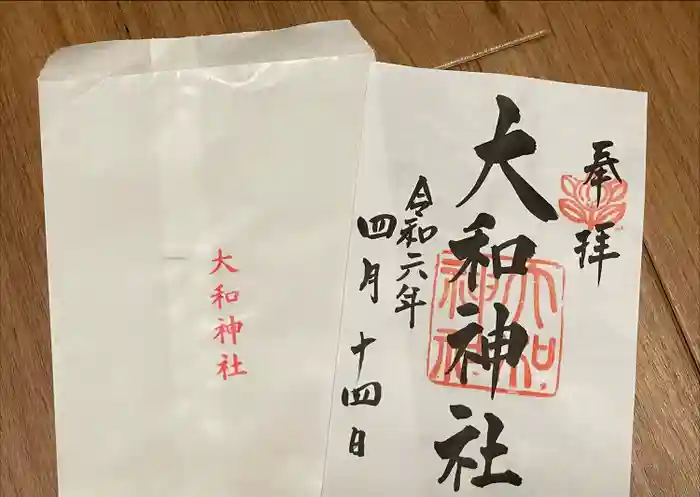 奉拝
大和神社
令和六年
四月十四日
大和神社
大和神社